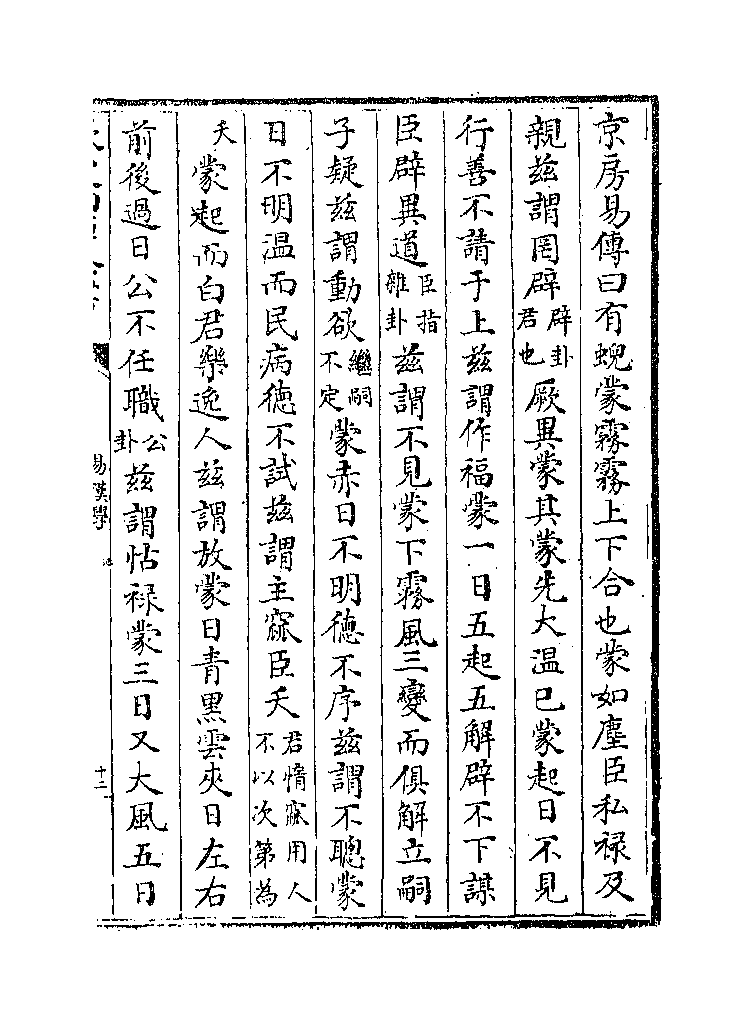 京房易傳曰有蜺蒙霧霧上下合也蒙如塵臣私祿及
親兹謂罔辟辟卦君也厥異蒙其蒙先大温已蒙起日不見
行善不請于上兹謂作福蒙一日五起五解辟不下謀
臣辟異道臣指雜卦兹謂不見蒙下霧風三變而俱解立嗣
子疑兹謂動欲繼嗣不定蒙赤日不明德不序兹謂不聰蒙
日不明温而民病德不試兹謂主窳臣夭君惰窳用人不以次第為
夭蒙起而白君樂逸人兹謂放蒙日青黑雲夾日左右
前後過日公不任職公卦兹謂怙祿蒙三日又大風五日
易漢學
十二